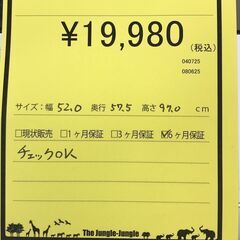 ¥19,980
(税込)
040725
080625
サイズ:幅 52.0 奥行 57.5 高さ 97.0 cm
□現状販売 □1ヶ月保証 □3ヶ月保証 ☑6ヶ月保証
チェックOK
The Jungle-Jungle